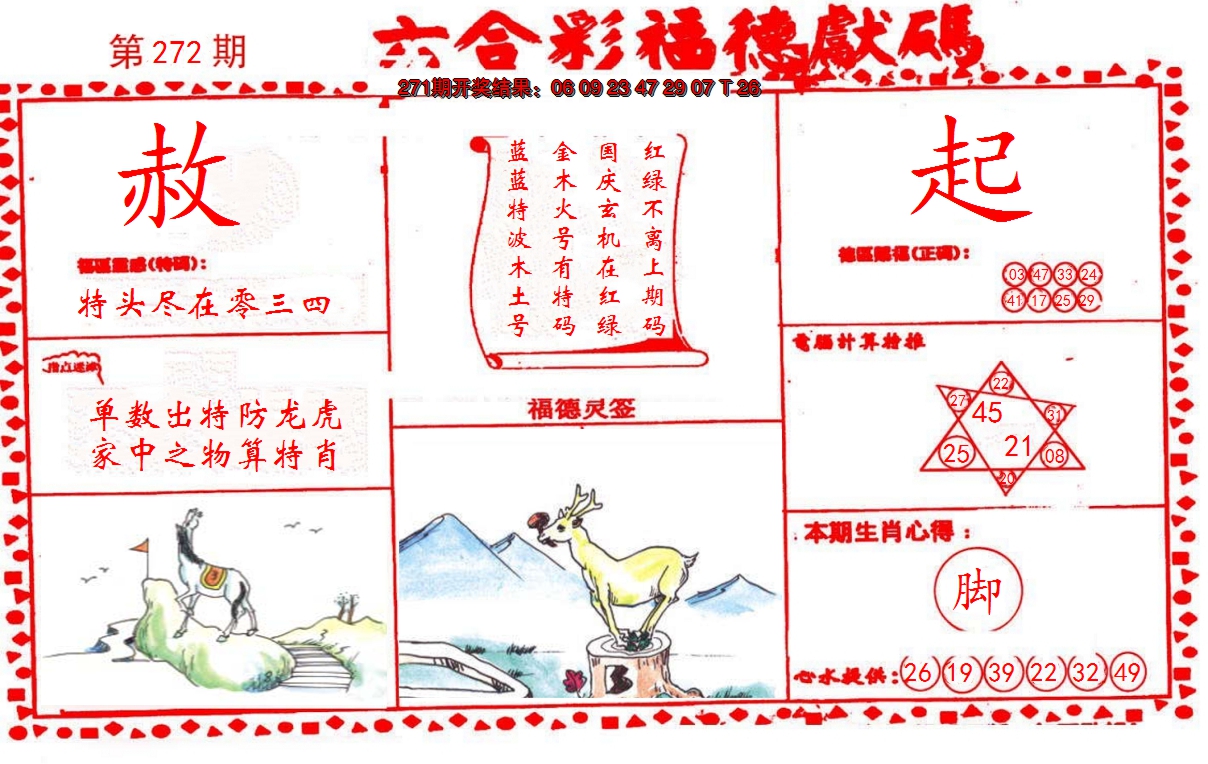 第 272 期
六合彩福德獻碼
271期开奖结果：06 09 23 47 29 07 T 26
赦
特头尽在零三四
单数出特防龙虎
家中之物算特肖
红绿不离上期码
国庆玄机在红绿
金木火号有特码
蓝蓝特波木土号
福德灵签
起
德區賜福(正碼)：
03 47 33 24
41 17 25 29
電腦計算推
22
27 45 31
25 21 08
20
本期生肖心得：
脚
心水提供：26 19 39 22 32 49